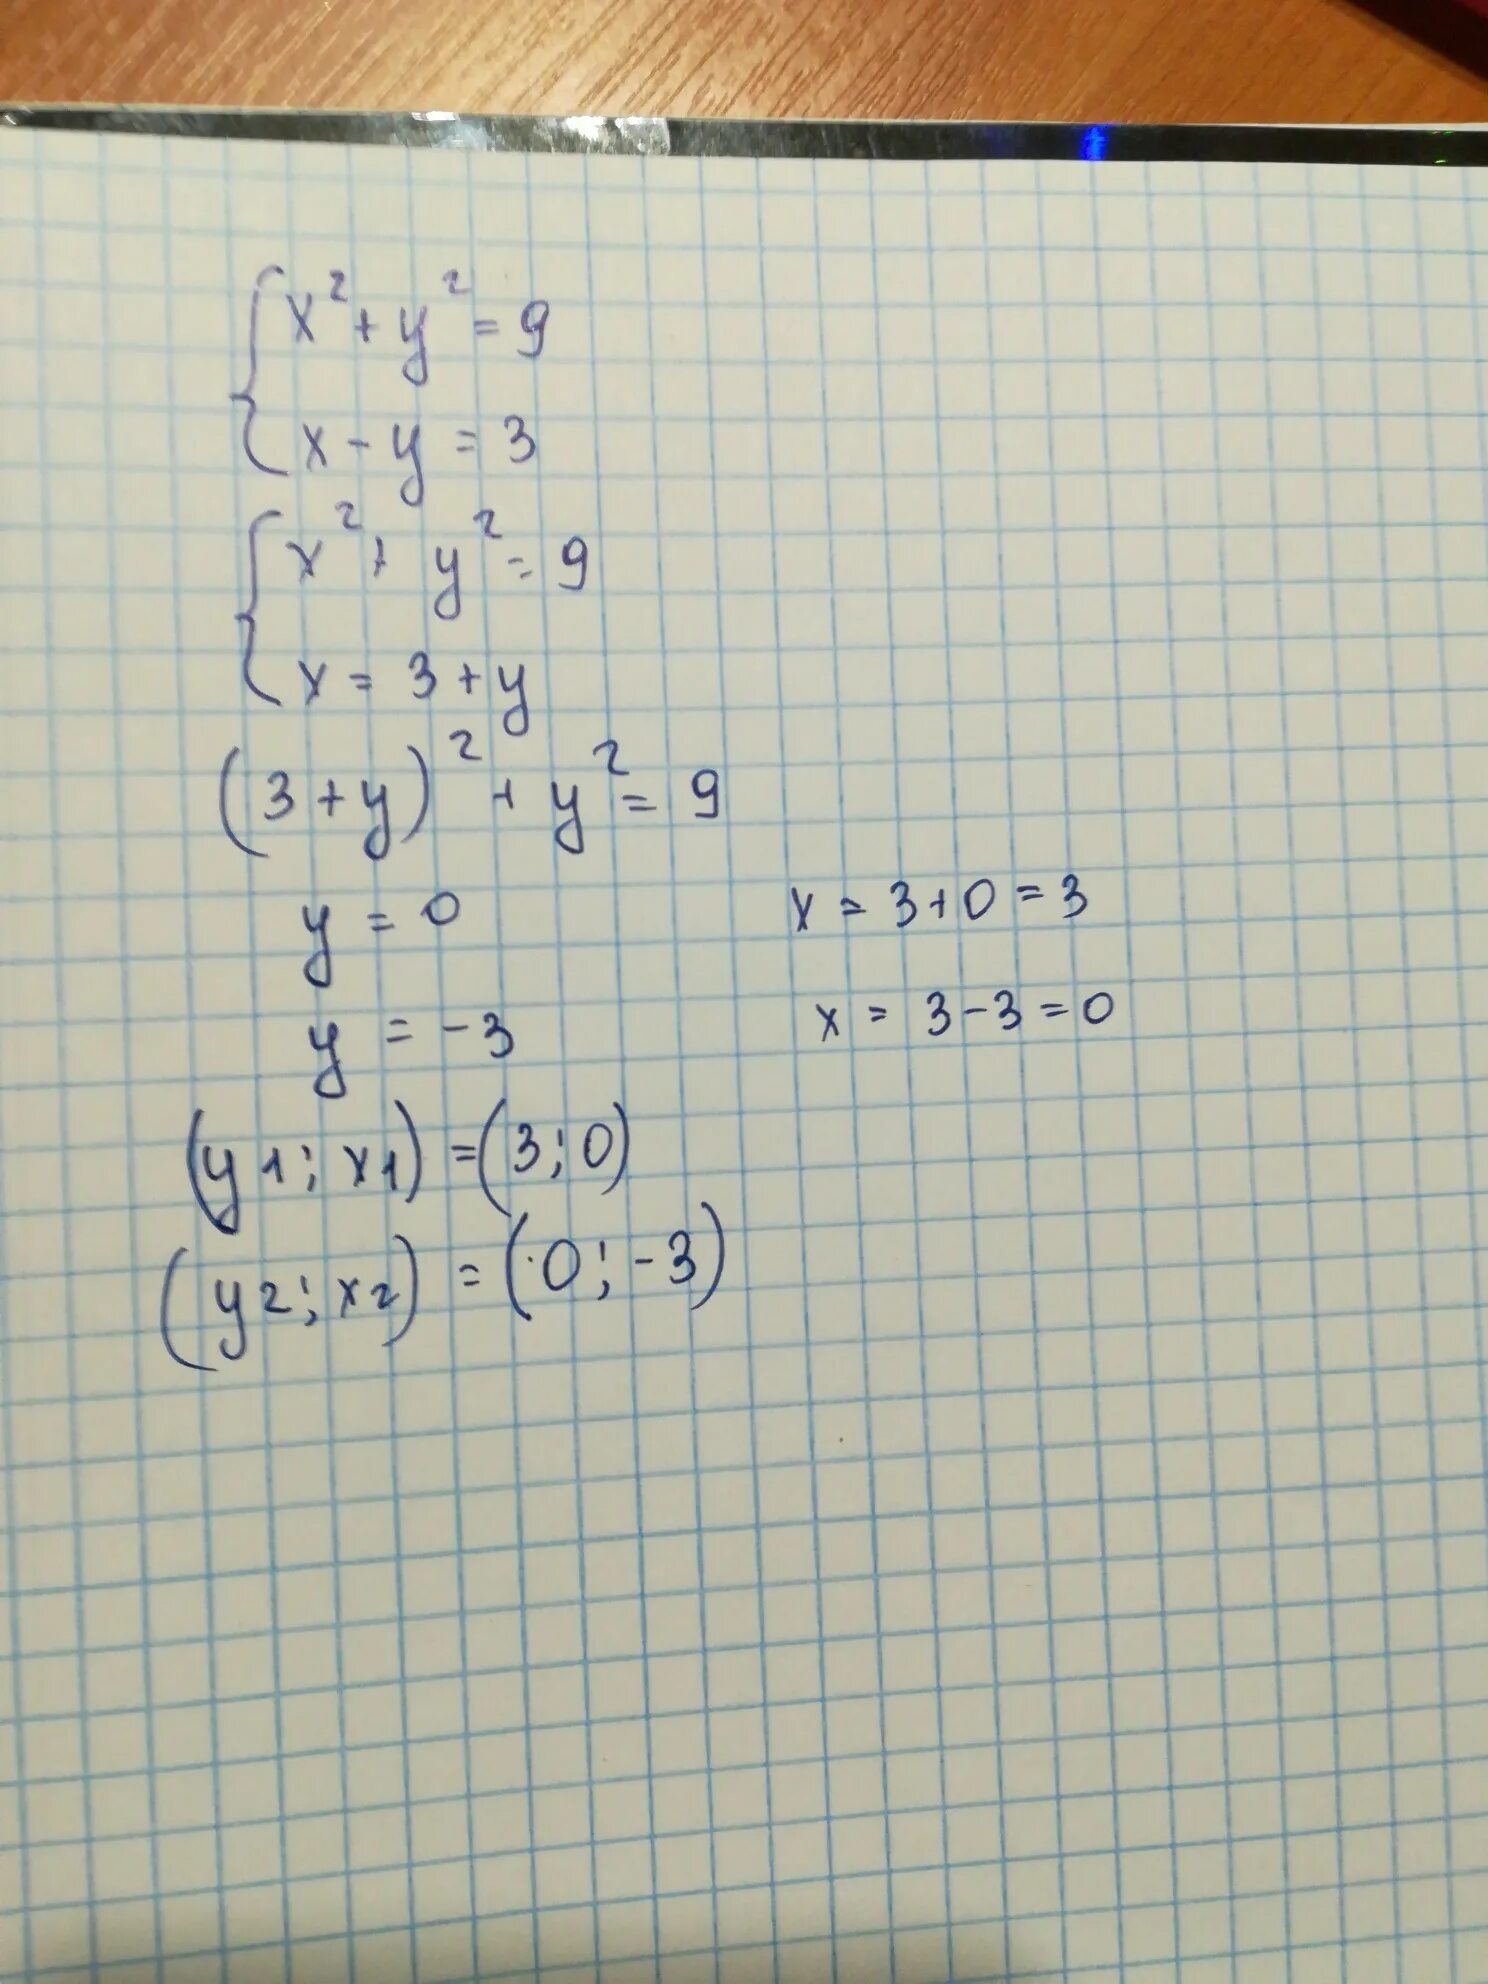 x² + y² = 9
x - y = 3
x² + y² = 9
x = 3 + y
(3 + y)² + y² = 9
y = 0 x = 3 + 0 = 3
y = -3 x = 3 - 3 = 0
(y1; x1) = (3; 0)
(y2; x2) = (0; -3)